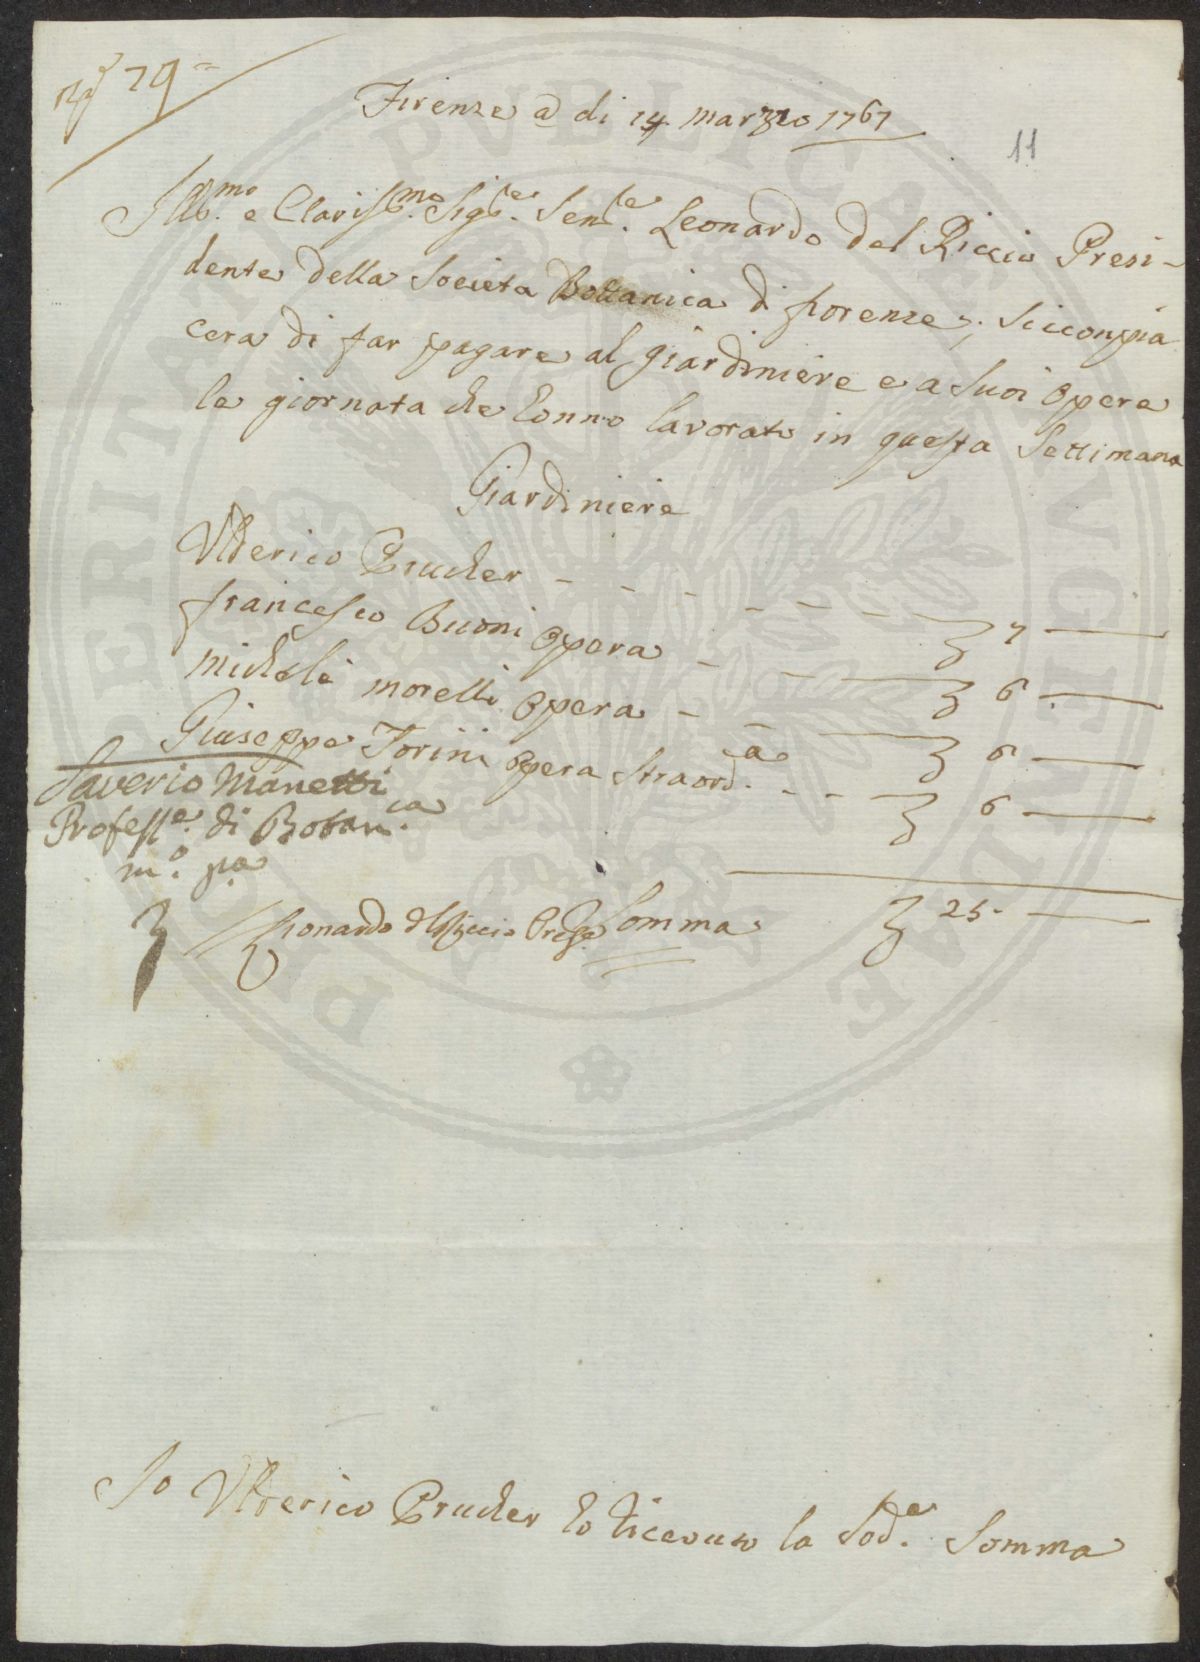 N° 79
Firenze a di 14 marzio 1767
11
Ill.mo e Clariss.mo Sig.re Sen.re Leonardo del Riccio Presi-
dente della Societa Bottanica di fiorenze; sicconpia
cera di far pagare al giardiniere e a suoi opere
le giornata che honno lavorato in questa Settimana
Giardiniere
Ulderico Prucker - - - - - - 7
francesco Buoni opera - - 6
michele morelli opera - - 6
Giuseppe Torini opera straord.a - - 6
Saverio Manetti
Profess.e di Botan.ca
m.o p.a
Lionardo del Riccio Preside Somma 25-
Io Ulderico Prucker ho riceuuto la Sod.a Somma
PERITAT PVBLICA